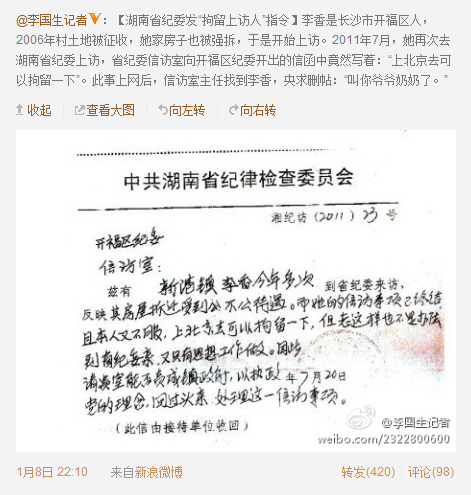 @李国生记者：【湖南省纪委发“拘留上访人”指令】李香是长沙市开福区人，
2006年村土地被征收，她家房子也被强拆，于是开始上访。2011年7月，她再次去
湖南省纪委上访，省纪委信访室向开福区纪委开出的信函中竟然写着：“上北京去可
以拘留一下”。此事上网后，信访室主任找到李香，央求删帖：“叫你爷爷奶奶了。”
收起 查看大图 向左转 向右转
中共湖南省纪律检查委员会
湘纪访（2011）23号
开福区纪委
信访室：
兹有 新港镇 李香今年多次 到省纪委来访，
反映其房屋拆迁受到公不公待遇。市她的信访事项已终结
且本人又不服，上北京去可以拘留一下，但老这样也不是办法
到省纪委来，又只有思想工作做。因此
请贵室能否责成镇政府，以执政 年7月20日
党的理念，回过头来，处理这一信访事项。
（此信由接待单位收回）
@李国生记者
weibo.com/2322800600
1月8日 22:10 来自新浪微博 转发(420) 评论(98)